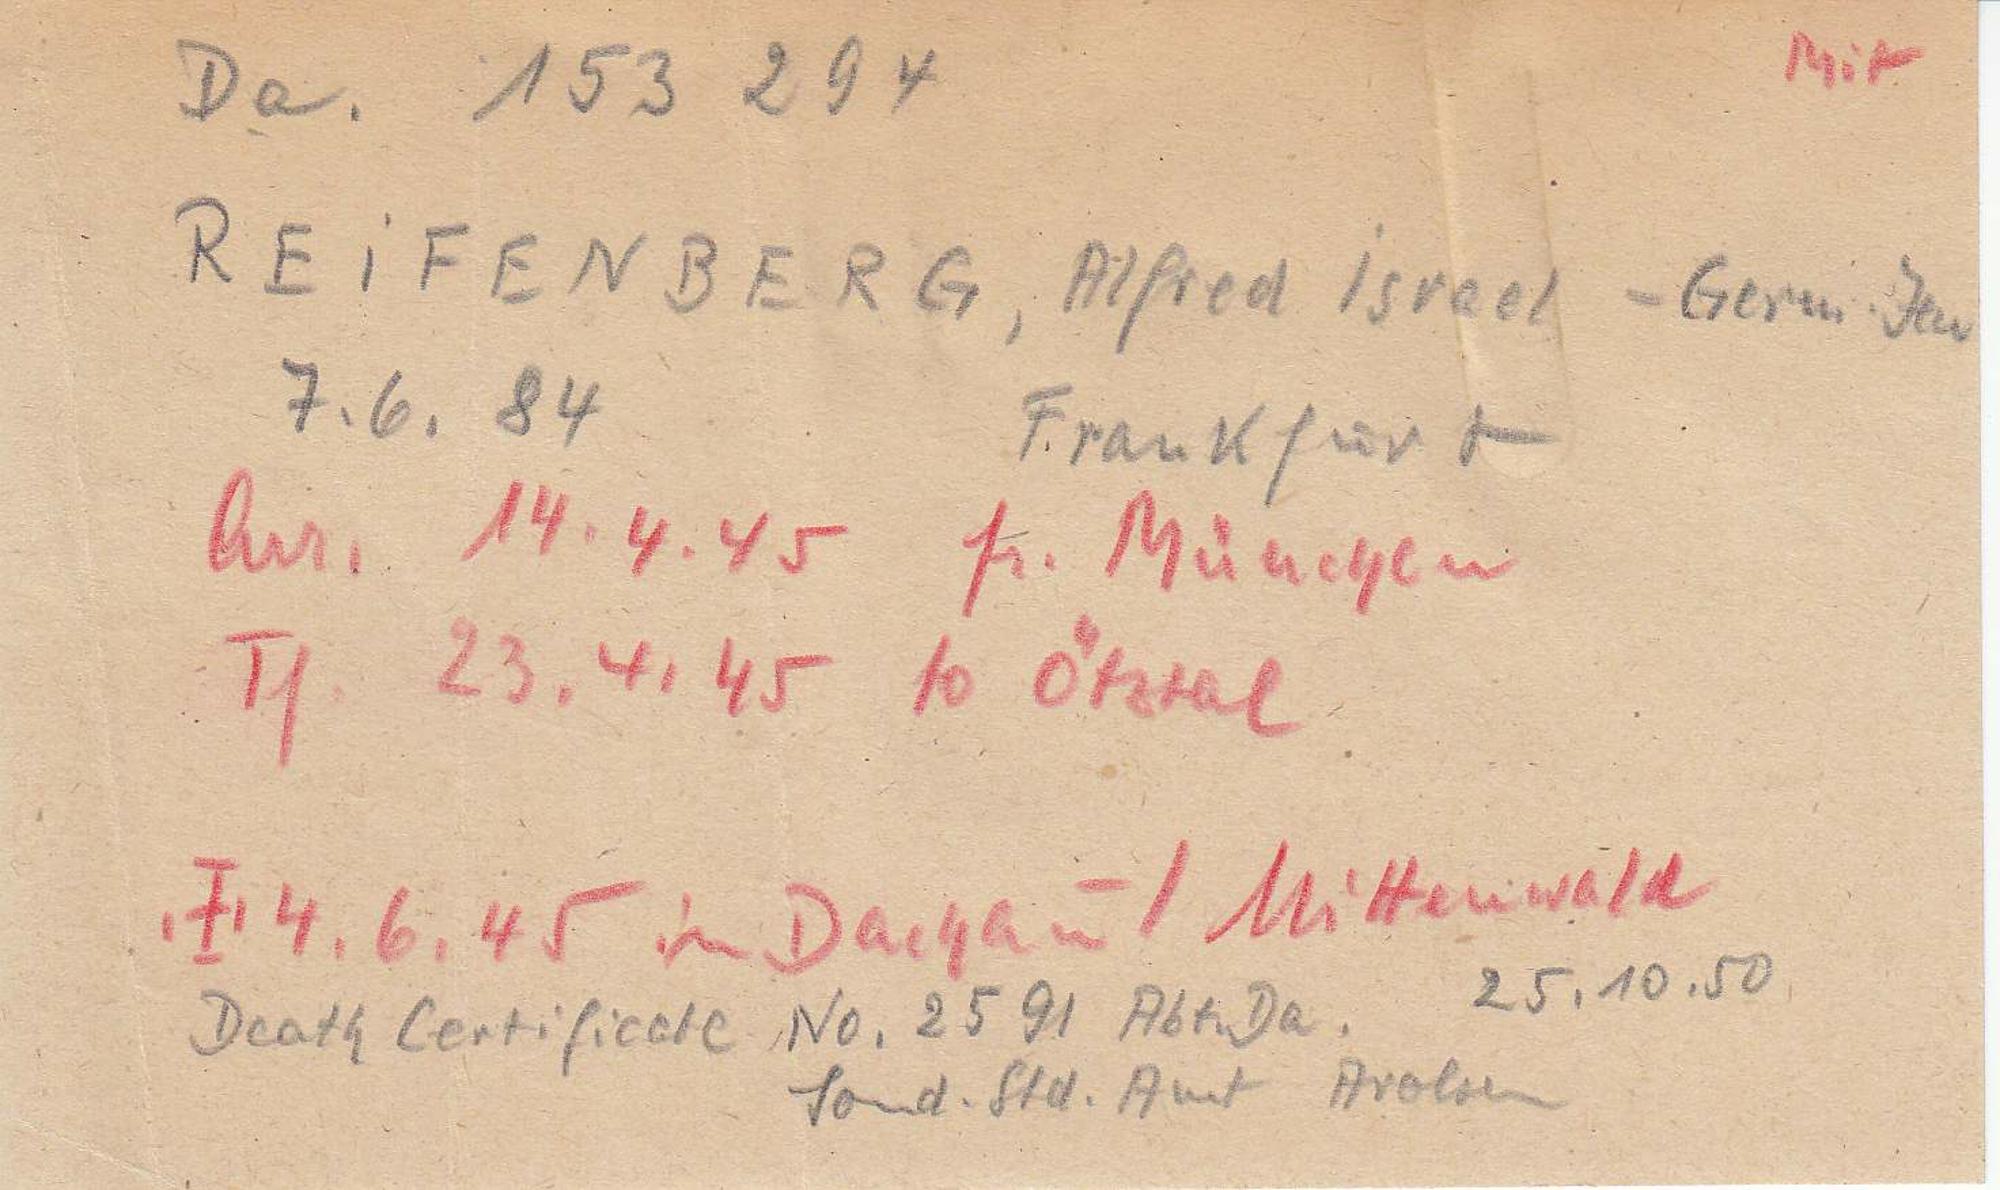 Da. 153 294 Mit
REiFENBERG, Alfred Israel - Germ. Jew
7.6. 84 Frankfurt
Arr. 14.4.45 fr. München
Tf. 23.4.45 to Ötztal
4.6.45 in Dachau / Mittenwald
25.10.50
Death Certificate No. 2591 Abt. Da.
Sond. Std. Amt Arolsen